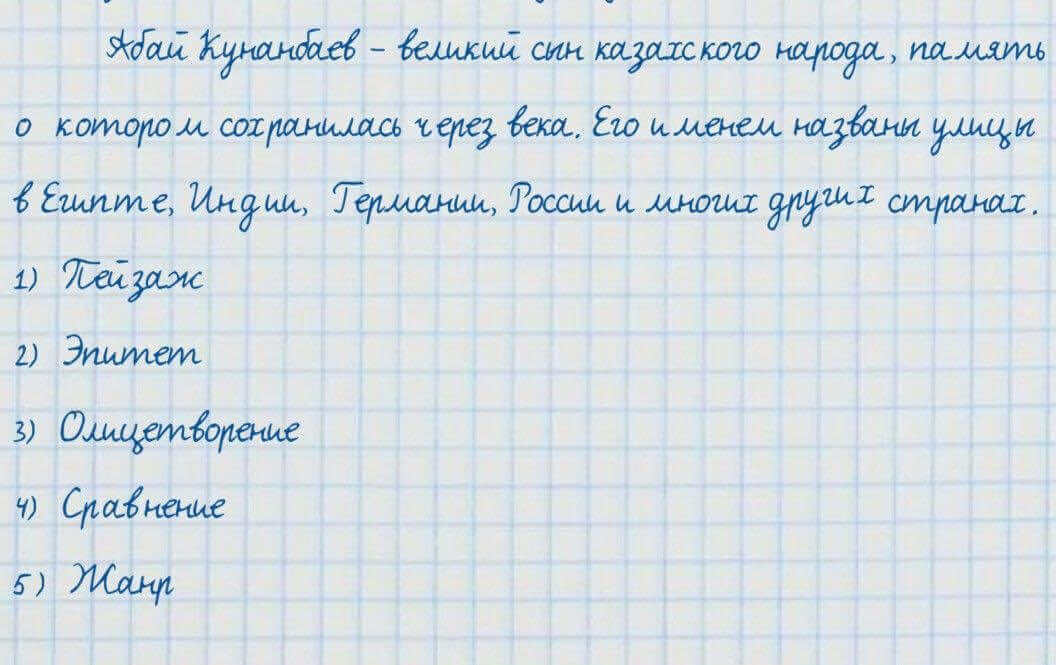 Абай Кунанбаев – великий сын казахского народа, память
о котором сохранилась через века. Его именем названы улицы
в Египте, Индии, Германии, России и многих других странах.
1) Пейзаж
2) Эпитет
3) Олицетворение
4) Сравнение
5) Жанр